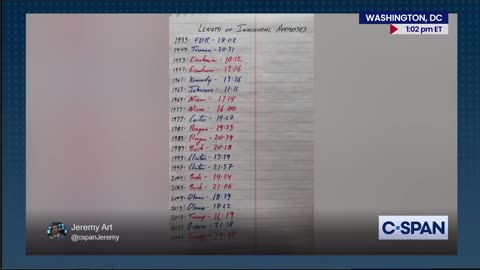 WASHINGTON, DC
1:02 pm ET
LENGTH OF INAUGURAL ADDRESSES
1933: FDR - 18:02
1949: Truman - 20:31
1953:
1957:
1961: Kennedy -
1965: Johnson - 11:11
1969: Nixon - 17:14
1973: Nixon - 16:00
1977: Carter - 14:27
1981: Reagan - 19:33
1985: Reagan - 20:39
1989: Bush - 20:18
1993: Clinton -
1997: Clinton - 21:57
2001: Bush - 14:24
2005: Bush - 21:06
2009: Obama - 18:29
2013: Obama - 18:22
2017: Trump - 16:19
2021: Biden - 21:18
Trump -
C-SPAN
Jeremy Art
@cspanJeremy